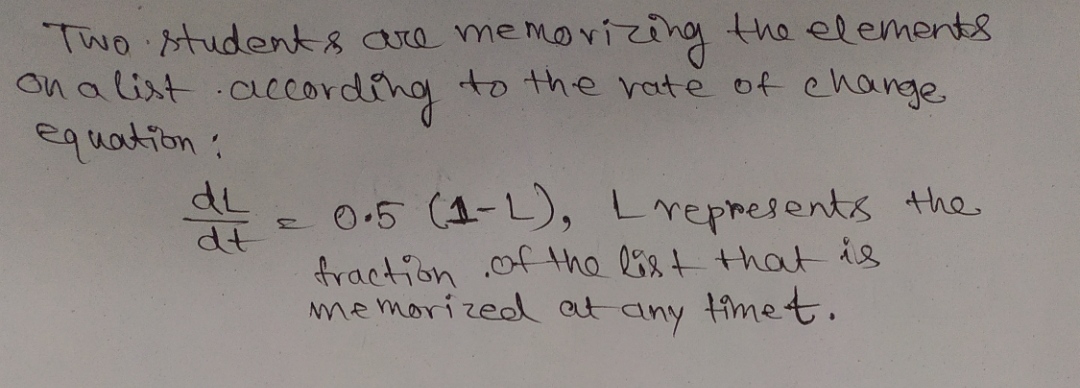 Two students are memorizing the elements
on a list according to the rate of change
equation:
dL/dt = 0.5 (1-L), L represents the
fraction of the list that is
memorized at any time t.